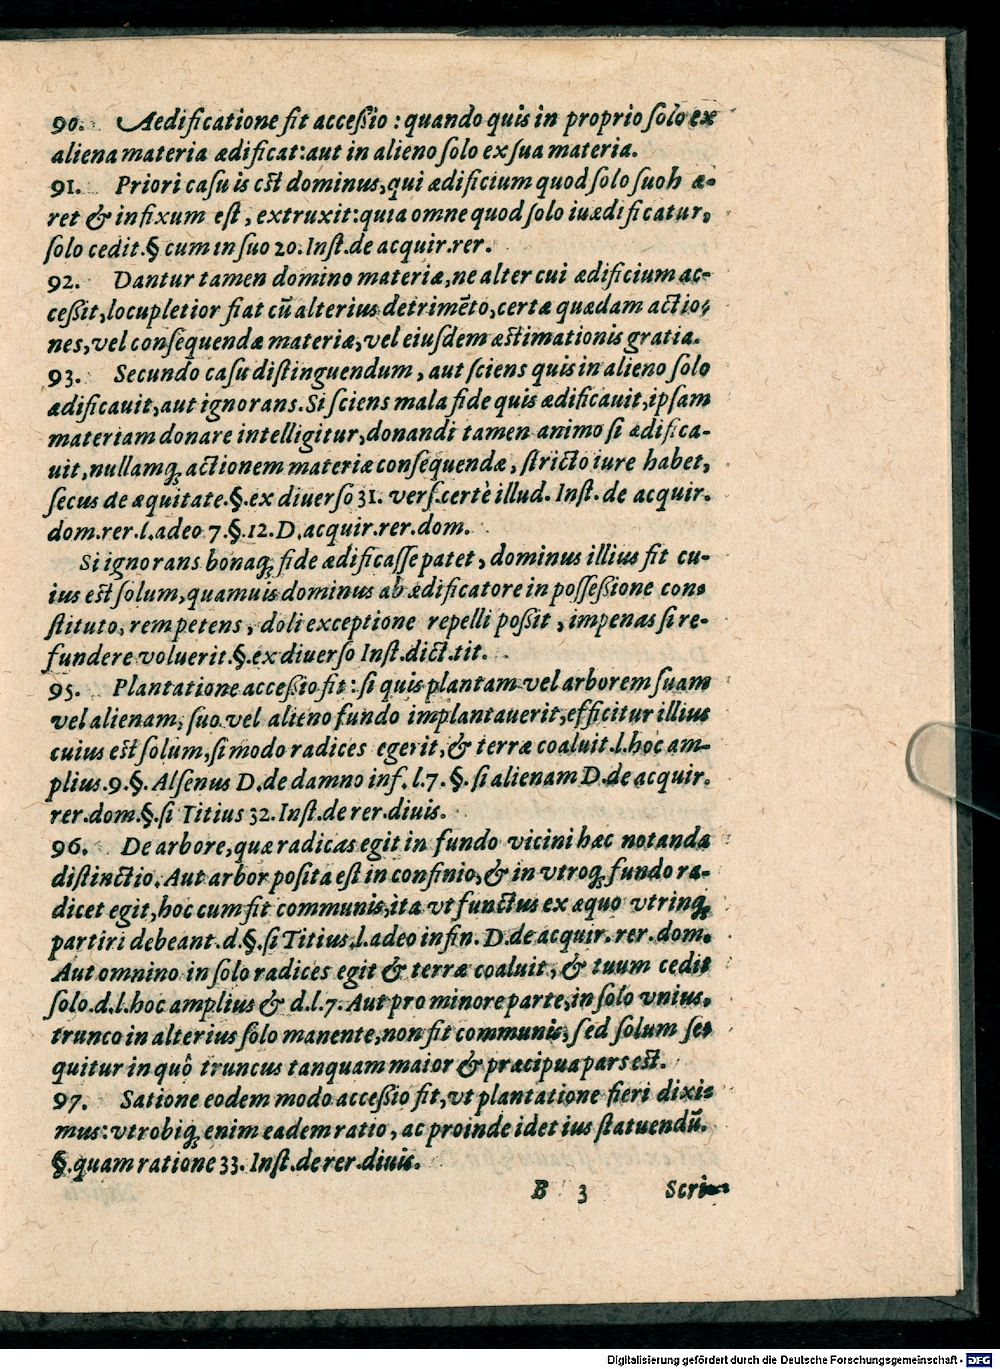 90. Aedificatione fit acceßio : quando quis in proprio ſolo ex
aliena materia ædificat: aut in alieno ſolo ex ſua materia.
91. Priori caſu is eſt dominus, qui ædificium quod ſolo ſuo h æ-
ret & infixum eſt, extruxit: quia omne quod ſolo inædificatur,
ſolo cedit. § cum in ſuo 20. Inſt. de acquir. rer.
92. Dantur tamen domino materiæ, ne alter cui ædificium ac-
ceßit, locupletior fiat cũ alterius detrimẽto, certæ quædam actio-
nes, vel conſequendæ materiæ, vel eiuſdem æſtimationis gratia.
93. Secundo caſu diſtinguendum, aut ſciens quis in alieno ſolo
ædificauit, aut ignorans. Si ſciens mala fide quis ædificauit, ipſam
materiam donare intelligitur, donandi tamen animo ſi ædifica-
uit, nullamq; actionem materiæ conſequendæ, ſtricto iure habet,
ſecus de æquitate. §. ex diuerſo 31. verſ. certè illud. Inſt. de acquir.
dom. rer. l. adeo 7. §. 12. D. acquir. rer. dom.
Si ignorans bonaq; fide ædificaſſe patet, dominus illius fit cu-
ius eſt ſolum, quamuis dominus ab ædificatore in poſſeßione con-
ſtituto, rem petens, doli exceptione repelli poßit, impenſas ſi re-
fundere voluerit. §. ex diuerſo Inſt. dict. tit.
95. Plantatione acceßio fit: ſi quis plantam vel arborem ſuam
vel alienam, ſuo vel alieno fundo implantauerit, efficitur illius
cuius eſt ſolum, ſi modo radices egerit, & terræ coaluit. l. hoc am-
plius. 9. §. Alfenus D. de damno inf. l. 7. §. ſi alienam D. de acquir.
rer. dom. §. ſi Titius 32. Inſt. de rer. diuiſ.
96. De arbore, quæ radicas egit in fundo vicini hæc notanda
diſtinctio. Aut arbor poſita eſt in confinio, & in vtroq; fundo ra-
dicet egit, hoc cum fit communis, ita vt functus ex æquo vtrinq;
partiri debeant. d. §. ſi Titius, l. adeo in fin. D. de acquir. rer. dom.
Aut omnino in ſolo radices egit & terræ coaluit, & tuum cedit
ſolo. d. l. hoc amplius & d. l. 7. Aut pro minore parte, in ſolo vnius,
trunco in alterius ſolo manente, non fit communis, ſed ſolum ſe-
quitur in quô truncus tanquam maior & præcipua pars eſt.
97. Satione eodem modo acceßio fit, vt plantatione fieri dixi-
mus: vtrobiq; enim eadem ratio, ac proinde idet ius ſtatuendũ.
§. quam ratione 33. Inſt. de rer. diuiſ.
B 3 Scri-
Digitalisierung gefördert durch die Deutsche Forschungsgemeinschaft - DFG